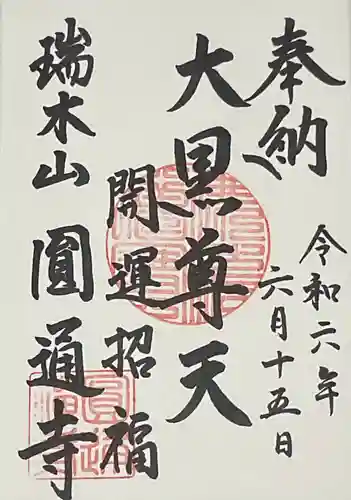 奉納
令和六年
六月十五日
大黒尊天
開運招福
瑞木山
圓通寺